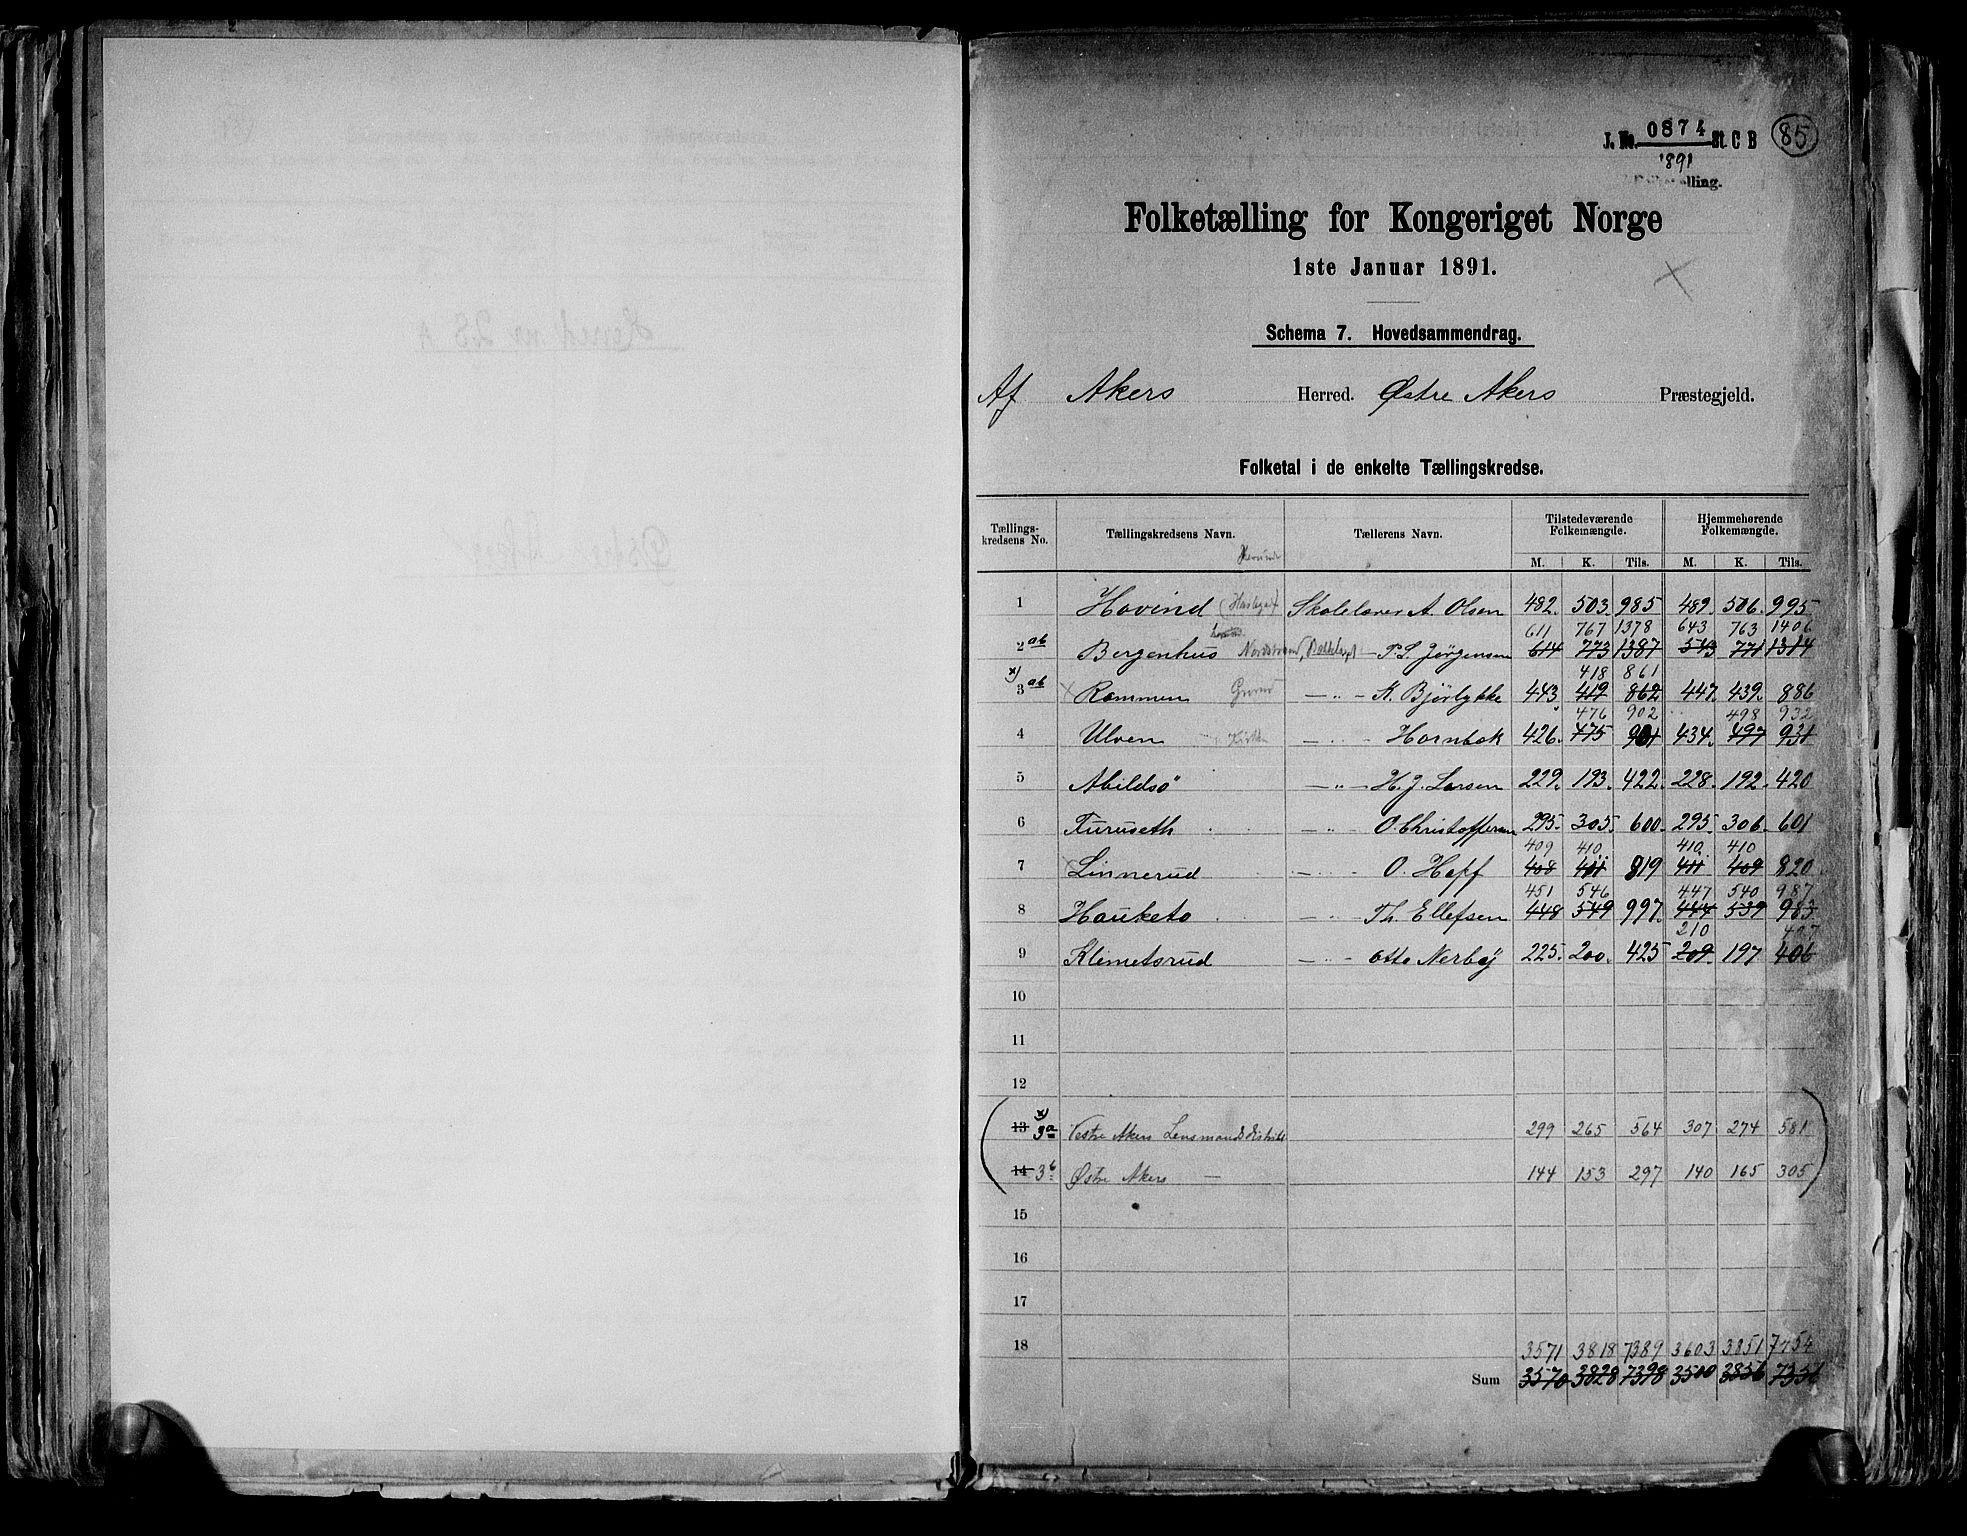 J. No. 0874 St. C B 85
1891
Folketælling for Kongeriget Norge
1ste Januar 1891.
Schema 7. Hovedsammendrag.
Af Akers Herred. Østre Akers Præstegjeld.
Folketal i de enkelte Tællingskredse.
Tællings-kredsens No. Tællingskredsens Navn. Tællerens Navn. Tilstedeværende Folkemængde. Hjemmehørende Folkemængde.
M. K. Tils. M. K. Tils.
1 Hovind Skolelærer A. Olsen 482. 503. 985 489. 506. 995
611 767 1378 643 763 1406
2 ab Bergenhus Nordstrand, — P. L. Jørgensen 614 773 1387 543 771 1314
418 861
x) 3 ab Rommen Grorud — „ — K. Bjørlykke 443 419 862 447. 439. 886
476 902 498 932
4 Ulven — „ — Hornbæk 426. 475 901 434. 497 931
5 Abildsø — „ — H. J. Larsen 229. 193. 422. 228. 192. 420
6 Furuseth — „ — O. Christoffersen 295. 305. 600. 295. 306. 601
409 410 410 410
7 Linnerud — „ — O. Hoff 408 411 819 411 409 820
451 546 447 540 987
8 Hauketo — „ — Th. Ellefsen 448 549 997. 444 539 983
210 407
9 Klemetsrud — „ — Otto Nerbøj 225. 200. 425 209. 197 406
10
11
12
13 x) 3a Vestre Akers Lensmandsdistrikt 299 265 564 307 274 581
14 3b Østre Akers — 144 153 297 140 165 305
15
16
17
18 3571 3818 7389 3603 3851 7454
Sum 3570 3828 7398 3500 3856 7356